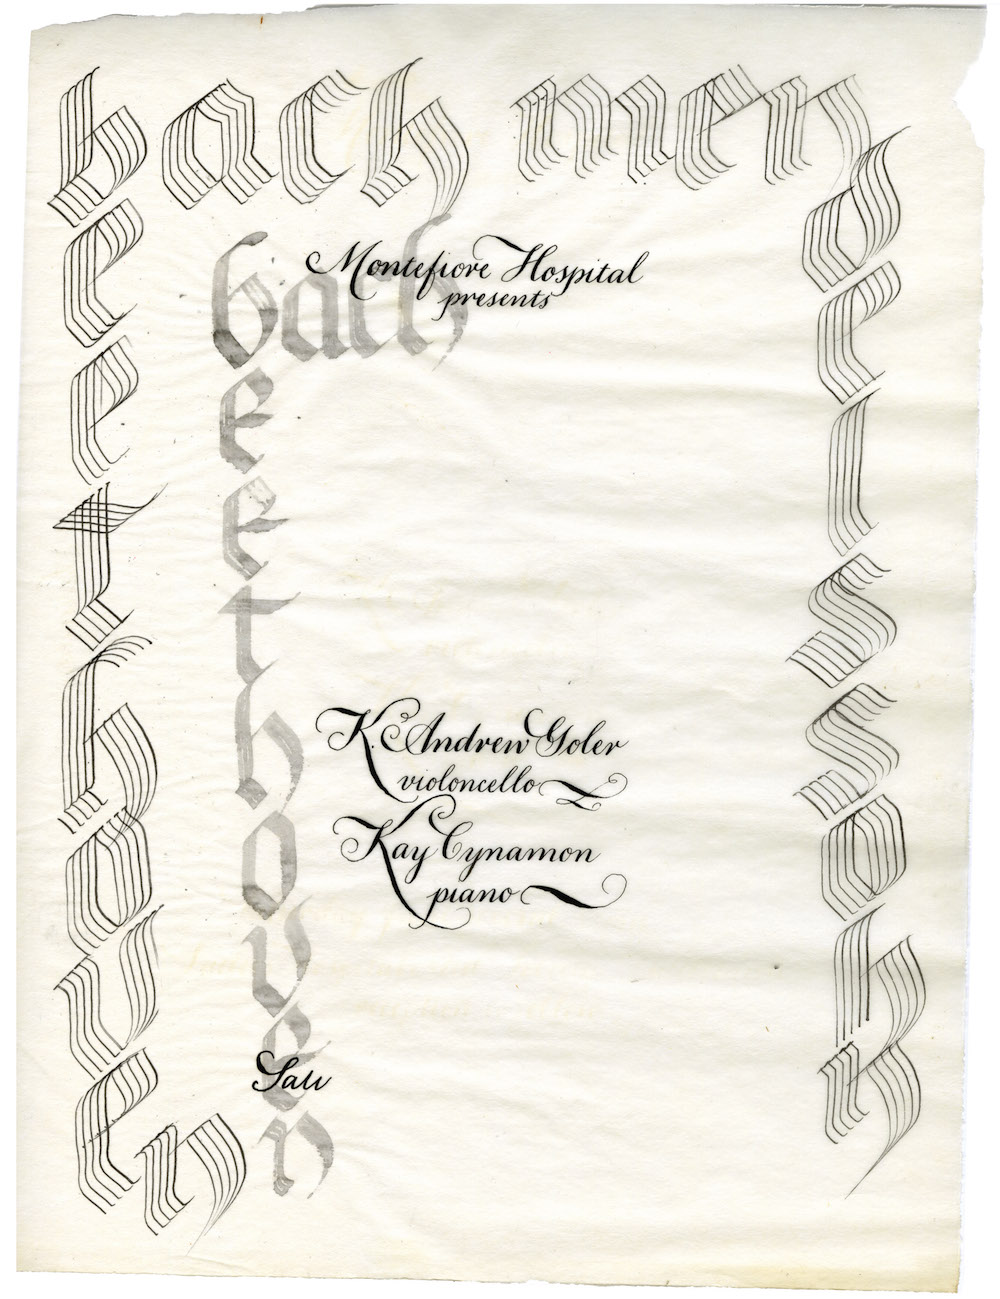 bach men
eethoven
delssohn
bach
eethoven
Montefiore Hospital
presents
K. Andrew Goler
violoncello
Kay Cynamon
piano